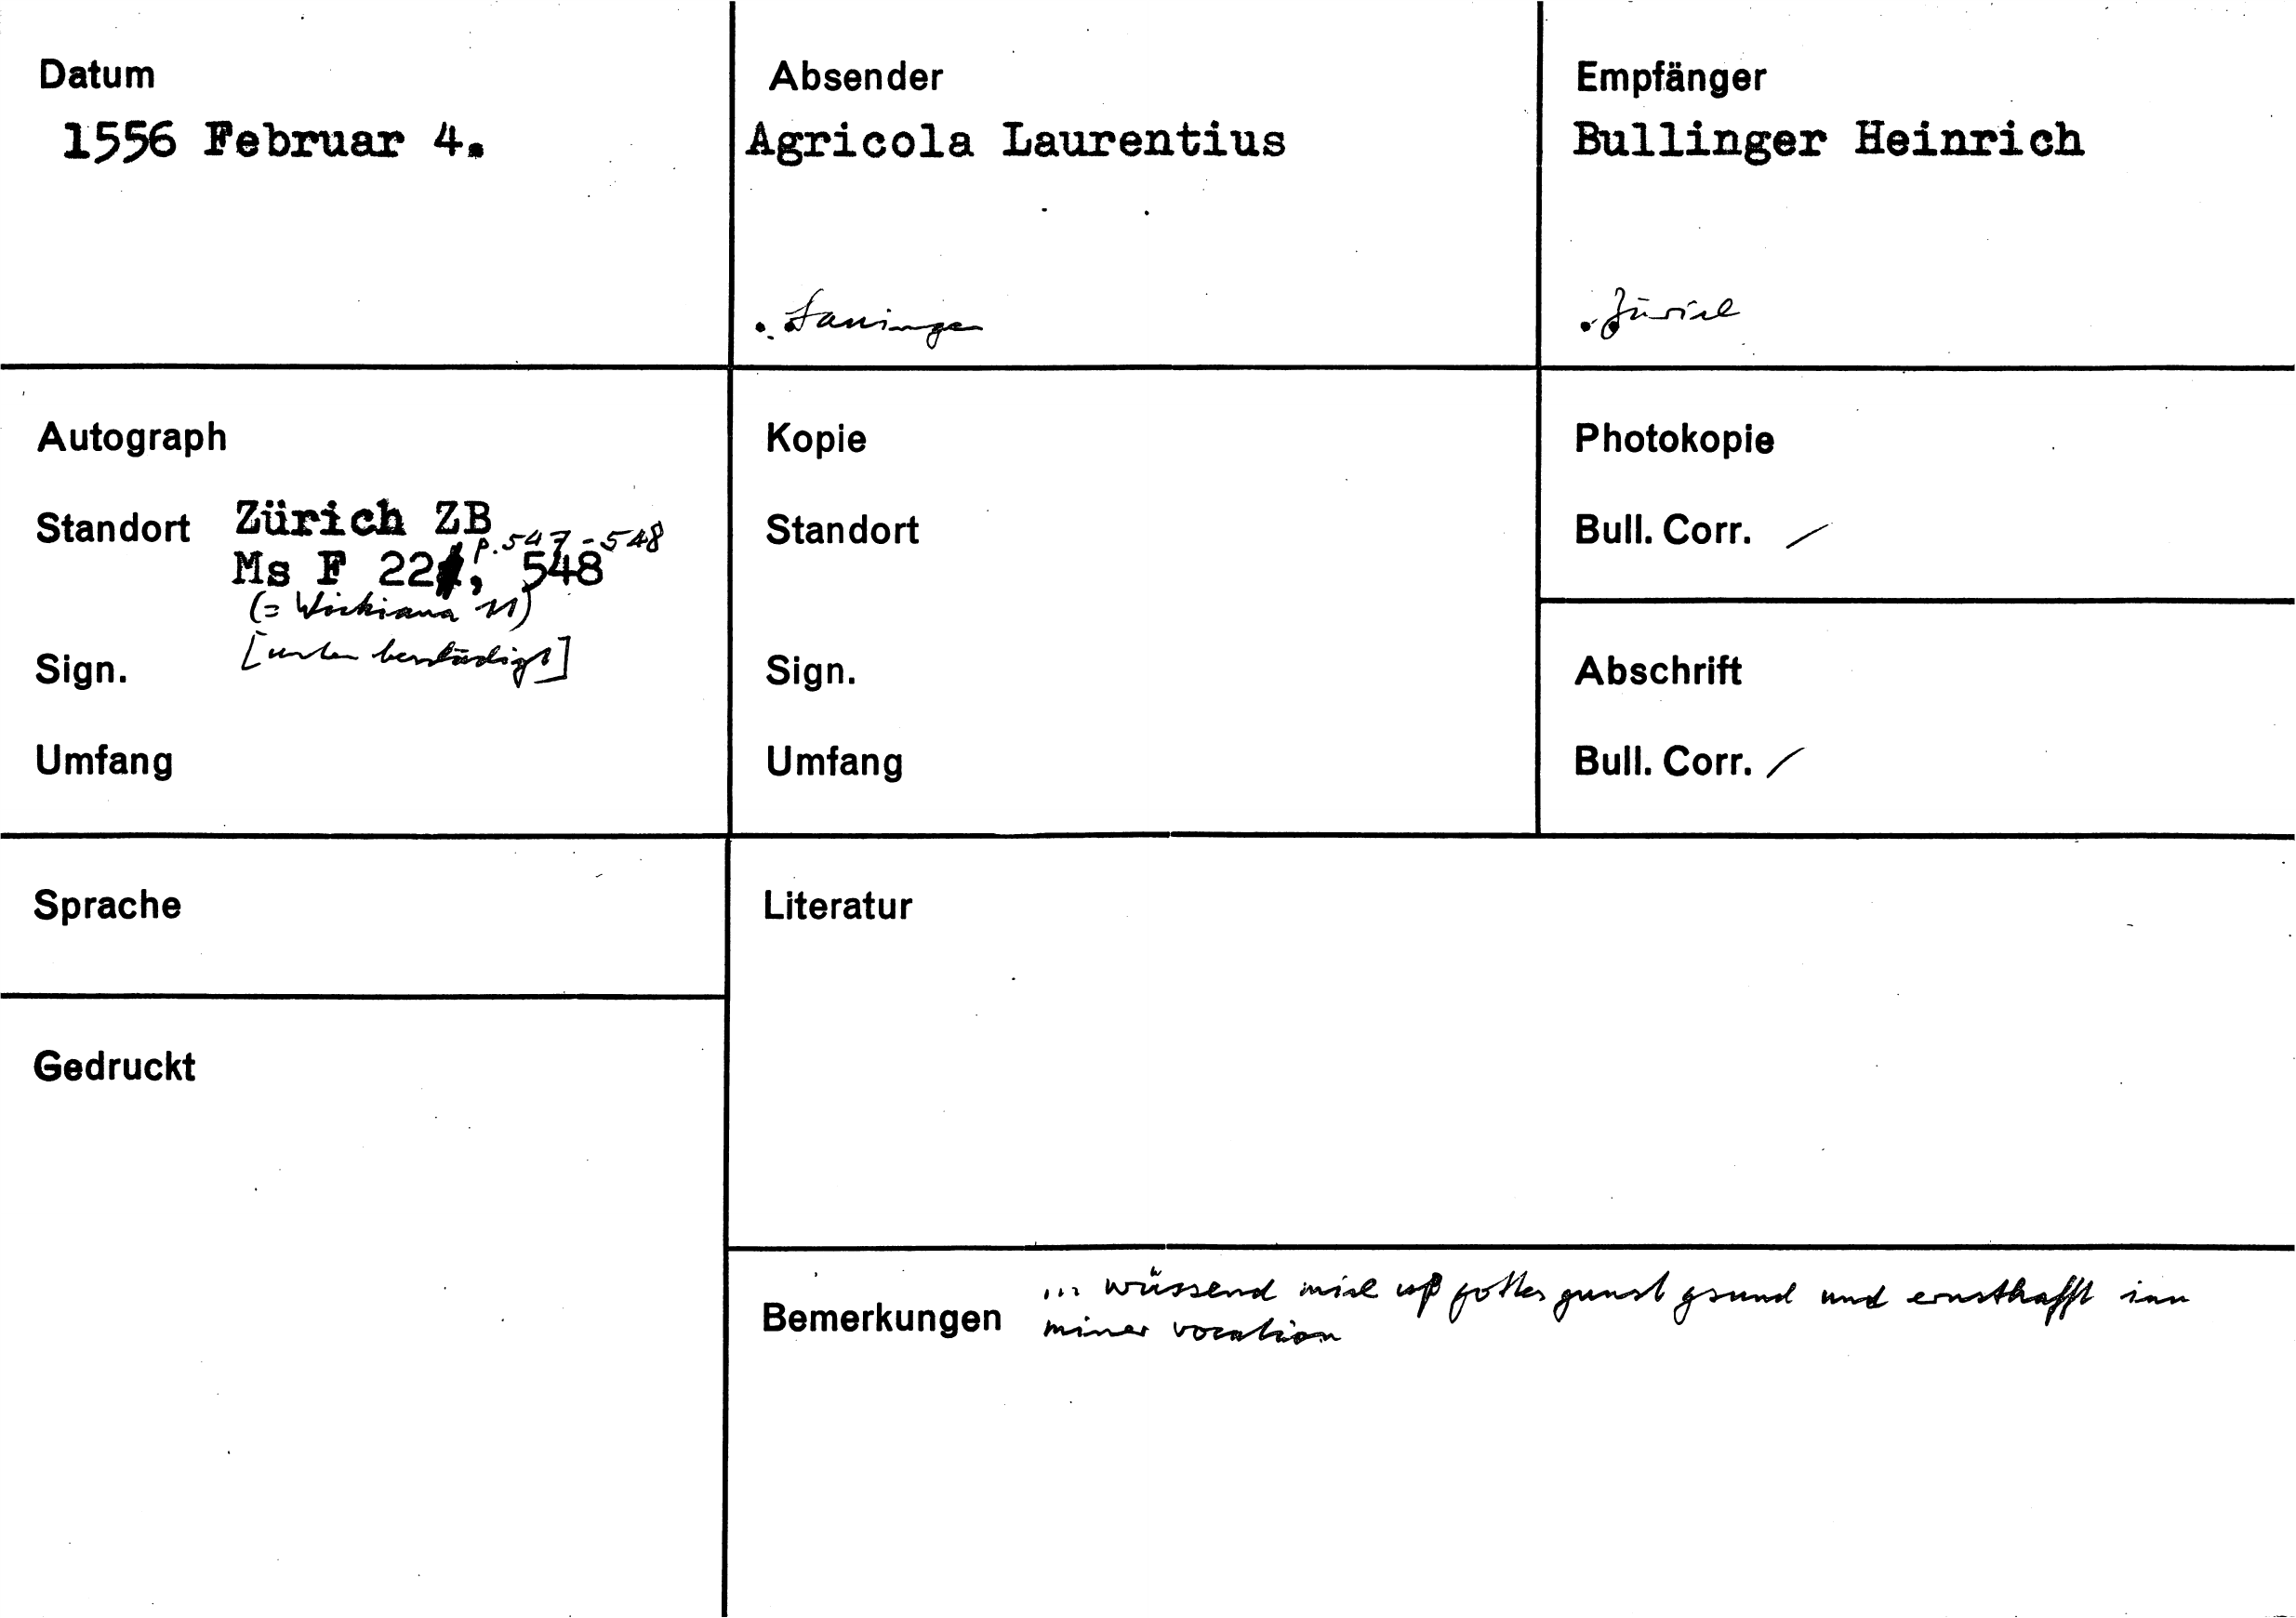 Datum
1556 Februar 4.
Absender
Agricola Laurentius
. Lauingen
Empfänger
Bullinger Heinrich
. Zürich
Autograph
Standort Zürich ZB
p. 547-548
Ms F 22, 548
(= Wickiana 11)
[unten beschädigt]
Sign.
Umfang
Kopie
Standort
Sign.
Umfang
Photokopie
Bull. Corr. /
Abschrift
Bull. Corr. /
Sprache
Literatur
Gedruckt
Bemerkungen
... wüssend mich uß gottes gunst gsund und ernsthafft inn
miner vocation